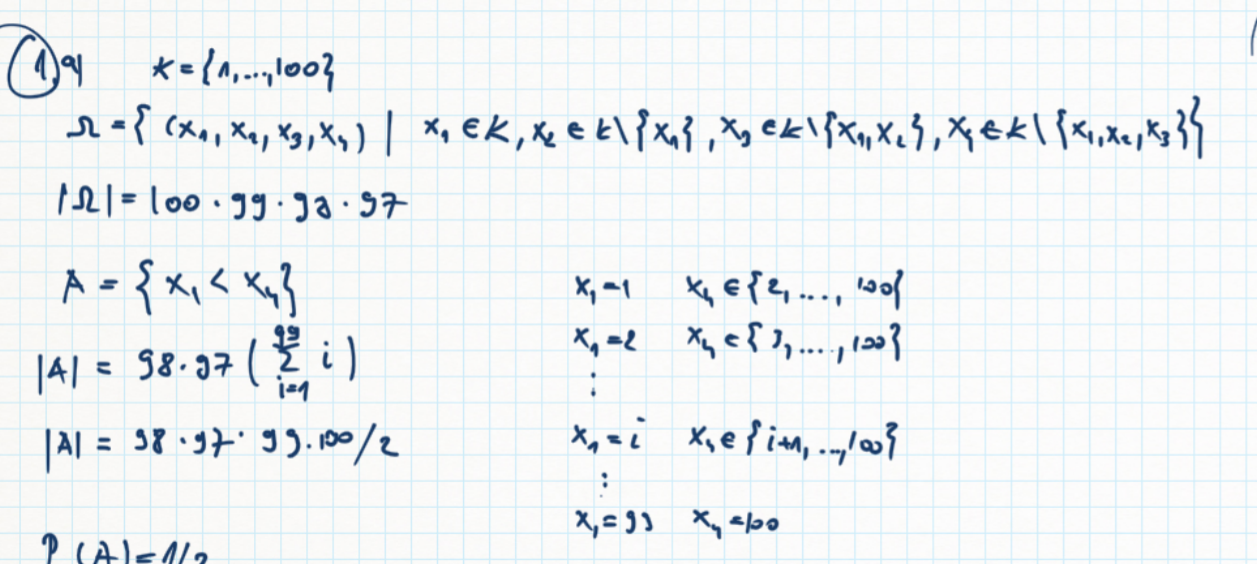 1.a) K = {1,...,100}
Ω = { (x₁, x₂, x₃, x₄) | x₁ ∈ K, x₂ ∈ K\{x₁}, x₃ ∈ K\{x₁,x₂}, x₄ ∈ K\{x₁,x₂,x₃}}
|Ω| = 100 · 99 · 98 · 97
A = { x₁ < x₄}
|A| = 98·97 ( ∑_{i=1}^{99} i )
|A| = 98 · 97 · 99·100/2
P(A)=1/2
x₁=1 x₄ ∈ {2,..., 100}
x₁=2 x₄ ∈ {3,...., 100}
⋮
x₁ = i x₄ ∈ {i+1,...,100}
⋮
x₁ = 99 x₄ = 100